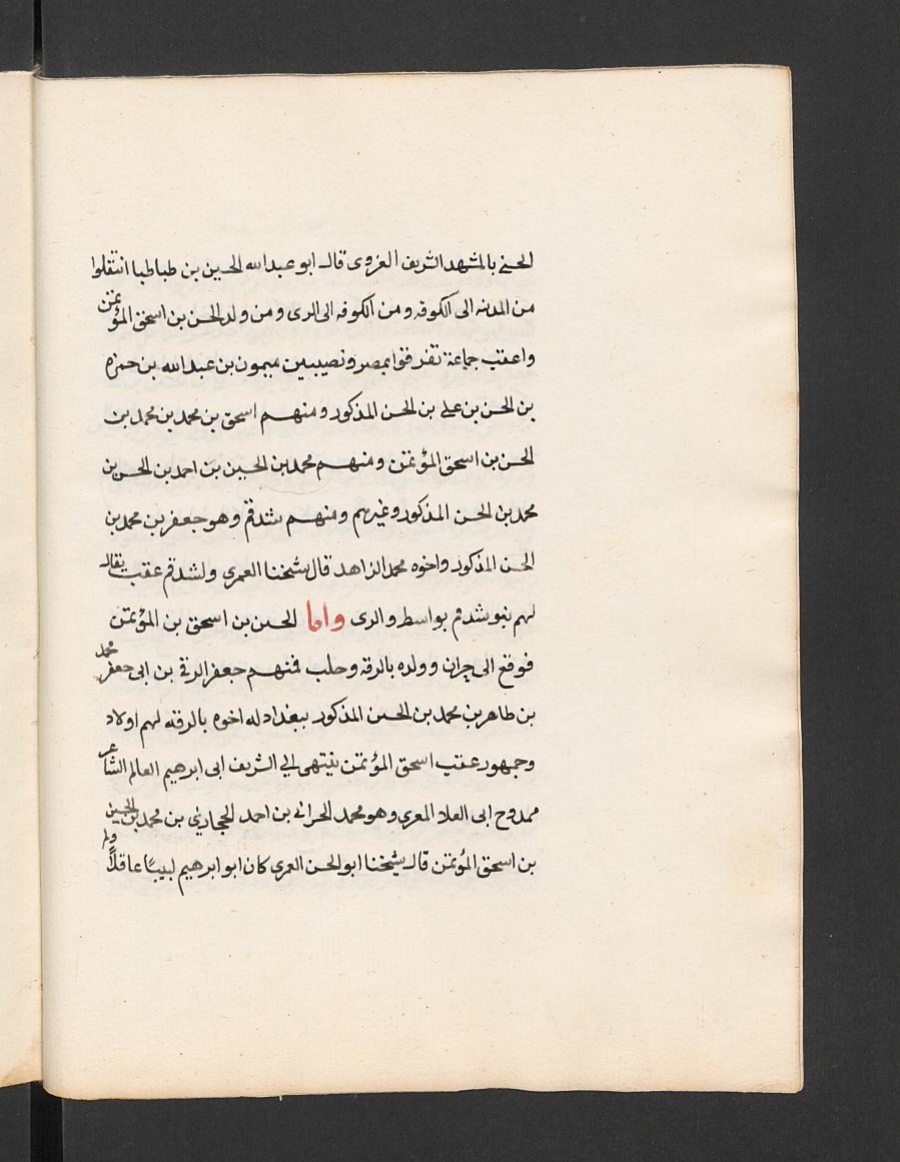 الحسنى بالمشهد الشريف الغروى قال ابو عبد الله الحسين بن طباطبا انتقلوا
من المدنه الى الكوفه ومن الكوفه الى الرى ومن ولد الحسن بن اسحق المؤتمن
واعقب جماعة تفرقوا بمصر ونصيبين ميمون بن عبد الله بن حمزه
بن الحسن بن على بن الحسن المذكور ومنهم اسحق بن محمد بن محمد بن
الحسن بن اسحق المؤتمن ومنهم محمد بن الحسين بن احمد بن الحسن بن
محمد بن الحسن المذكور وغيرهم ومنهم شدقم وهو جعفر بن محمد بن
الحسن المذكور واخوه محمد الزاهد قال شيخنا العمرى ولشدقم عقب يقال
لهم بنو شدقم بواسط والرى واما الحسن بن اسحق بن المؤتمن
فوقع الى حران وولده بالرقه وحلب فمنهم جعفر الرقى بن ابى جعفر محمد
بن طاهر بن محمد بن الحسن المذكور ببغداد له اخوه بالرقه لهم اولاد
وجمهور عقب اسحق المؤتمن ينتهى الي الشريف ابى ابرهيم العالم الشاعر
ممدوح ابى العلا المعري وهو محمد الحرانى بن احمد الحجازي بن محمد بن الحسين
بن اسحق المؤتمن قال شيخنا ابو الحسن العمرى كان ابو ابرهيم لبيبًا عاقلًا ولم